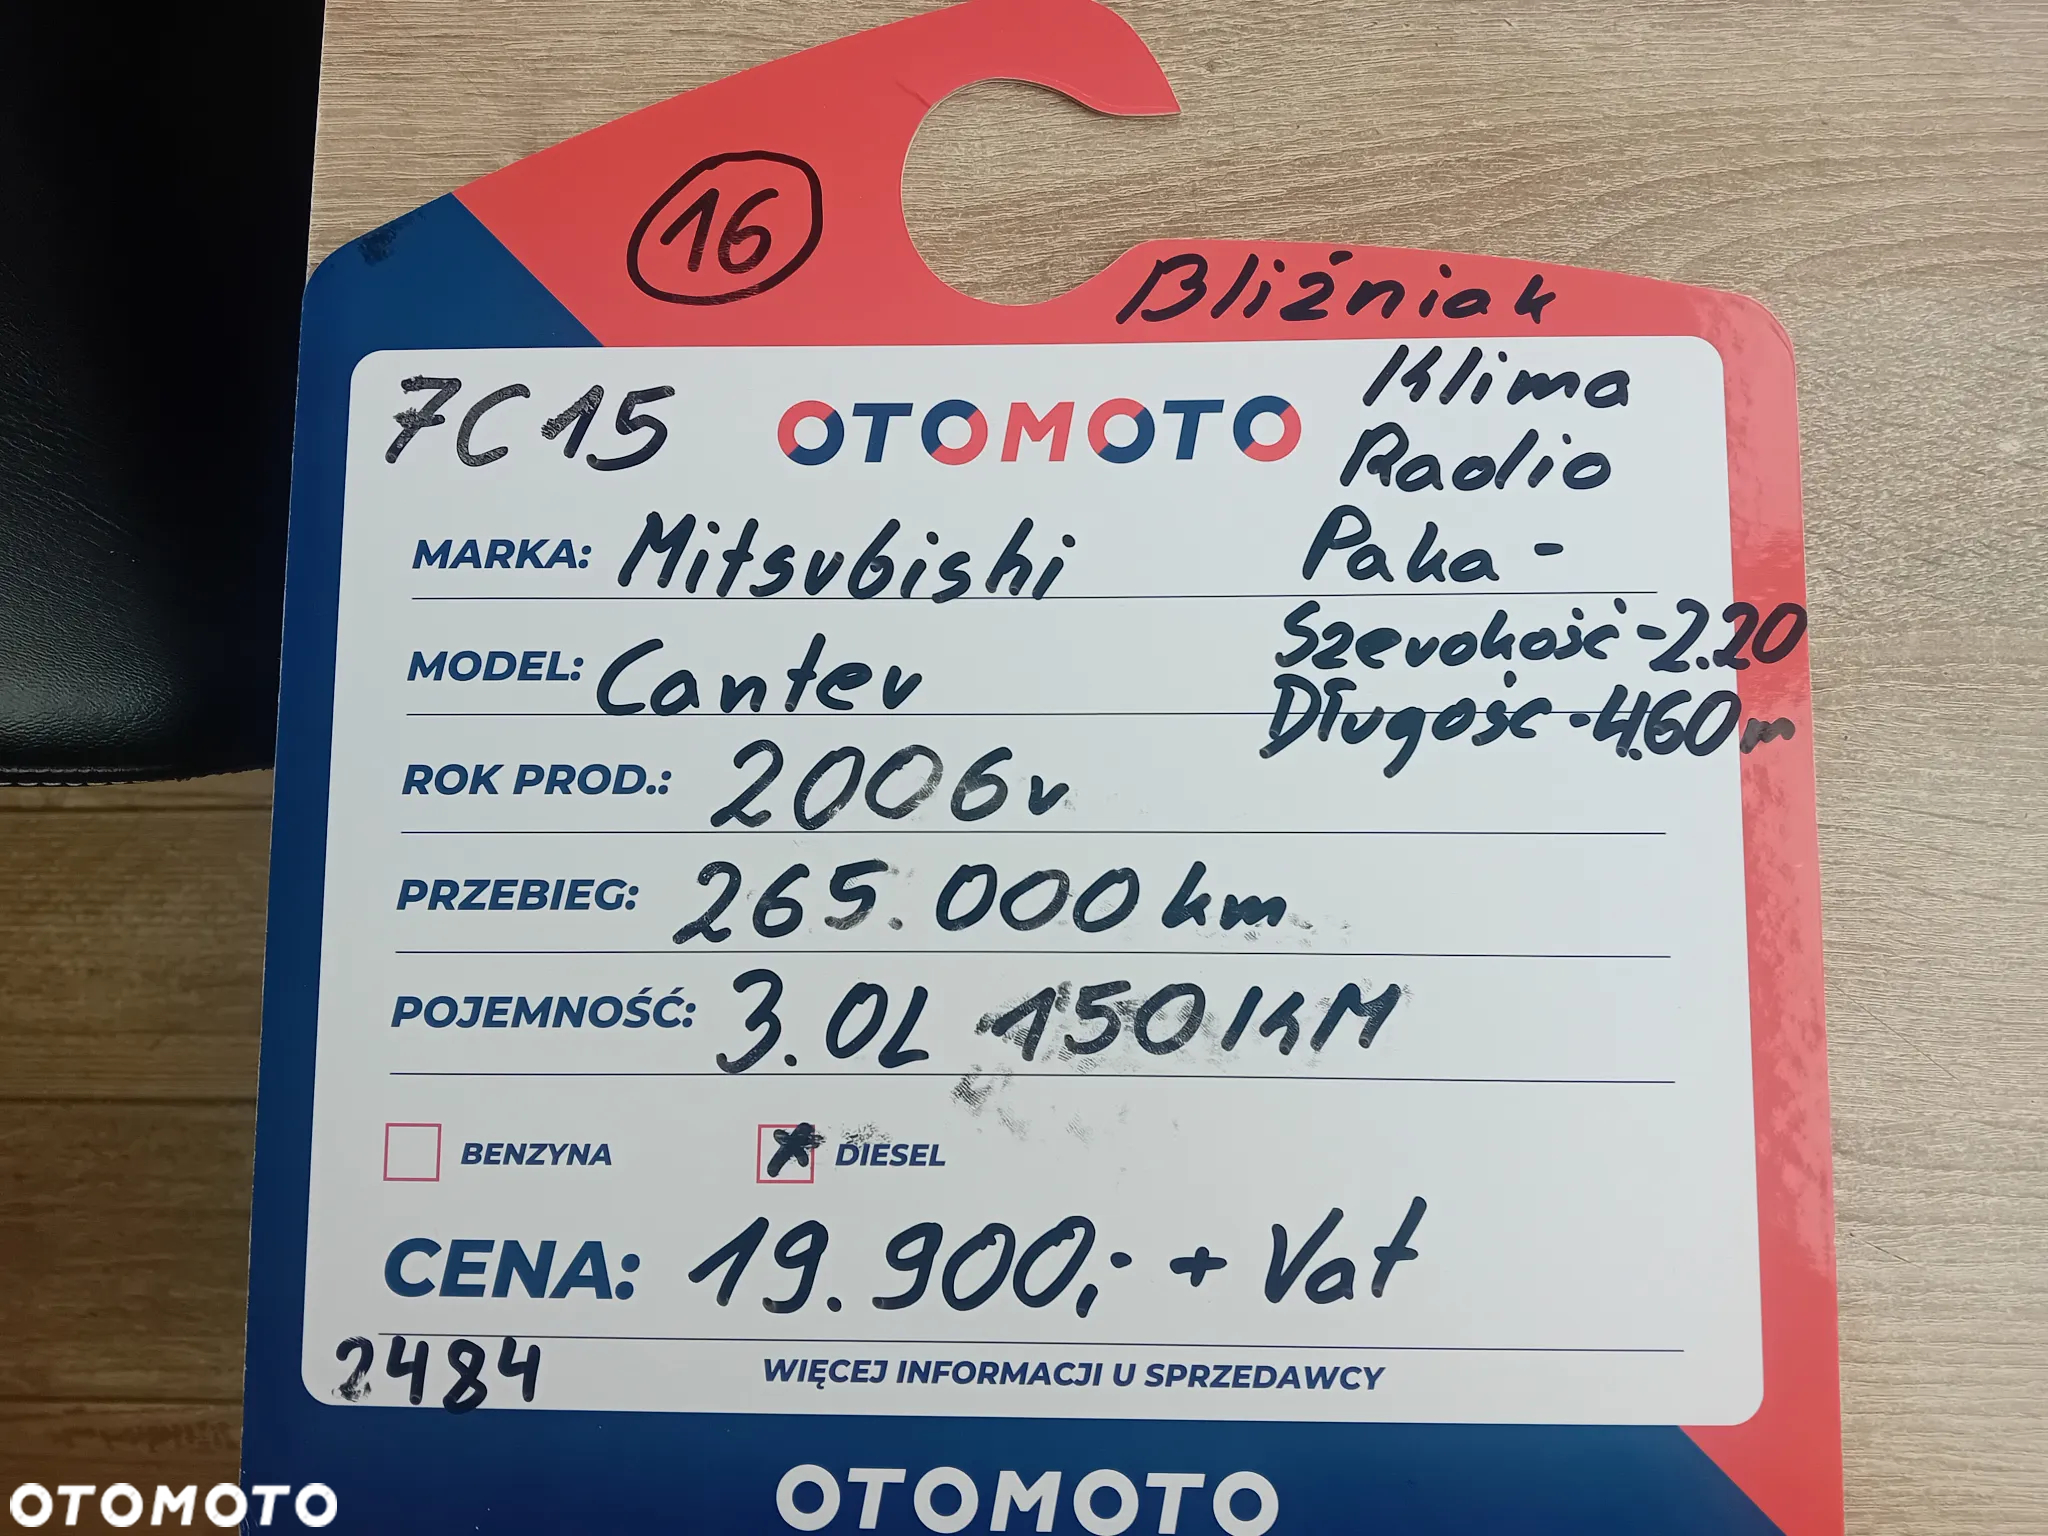 16
Bliźniak
7C15
OTOMOTO
Klima
Radio
Paka -
Szerokość - 2.20
Długość - 4.60 m
MARKA: Mitsubishi
MODEL: Canter
ROK PROD.: 2006r
PRZEBIEG: 265.000 km
POJEMNOŚĆ: 3.0L 150 KM
BENZYNA
DIESEL
CENA: 19.900,- + Vat
2484
WIĘCEJ INFORMACJI U SPRZEDAWCY
OTOMOTO
OTOMOTO